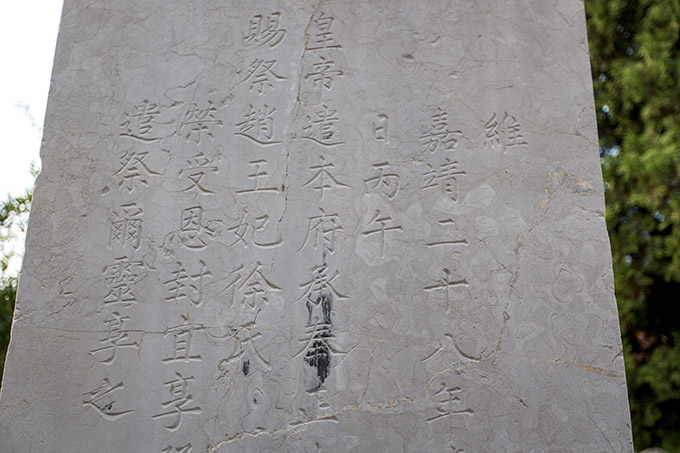 維
嘉靖二十八年
日丙午
皇帝遣本府承奉正
賜祭趙王妃徐氏
榮受恩封宜享
遣祭爾靈享之